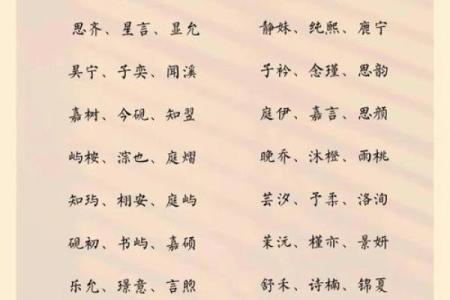 思齐、星言、显允 静姝、纯熙、鹿宁
昊宁、子奕、闻溪 子衿、念瑾、思韵
嘉树、今砚、知翌 庭伊、嘉言、思颜
屿桉、淙也、庭熠 晚乔、沐橙、雨桃
知玙、栩安、庭屿 芸汐、予柔、洛洵
砚初、书屿、嘉硕 茉沅、槿亦、景妍
乐允、璟意、言煦 舒禾、诗楠、锦夏